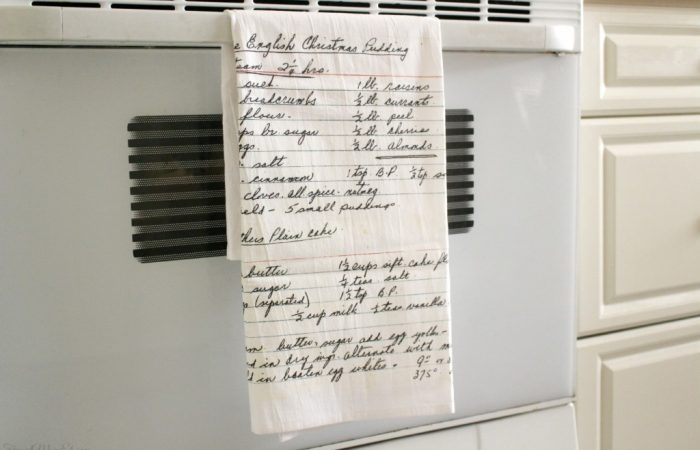 e English Christmas Pudding
eam 2¼ hrs.
suet. 1 lb. raisins
breadcrumbs ½ lb. currants
flour. ½ lb. peel
ps br sugar ½ lb. cherries
gs. ½ lb. almonds.
salt
cinnamon 1 tsp B.P. ½ tsp so
cloves. all spice. nutmeg
eld - 5 small puddings
thers Plain cake.
butter 1½ cups sift. cake fl
sugar ¼ teas. salt
(separated) 1½ tsp B.P.
½ cup milk ½ teas. vanilla
am butter, sugar add egg yolks -
d in dry ingr. alternate with m
d in beaten egg whites. 9"
375°